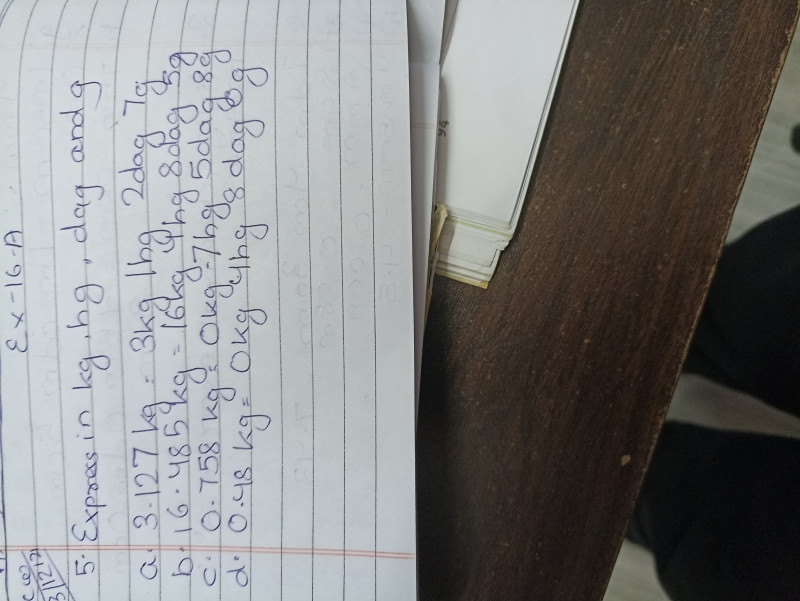 Ex-16-A
5. Express in kg, hg, dag and g
a. 3.127 kg = 3kg 1hg 2dag 7g
b. 16.485 kg = 16kg 4hg 8dag 5g
c. 0.758 kg = 0kg 7hg 5dag 8g
d. 0.48 kg = 0kg 4hg 8dag 0g